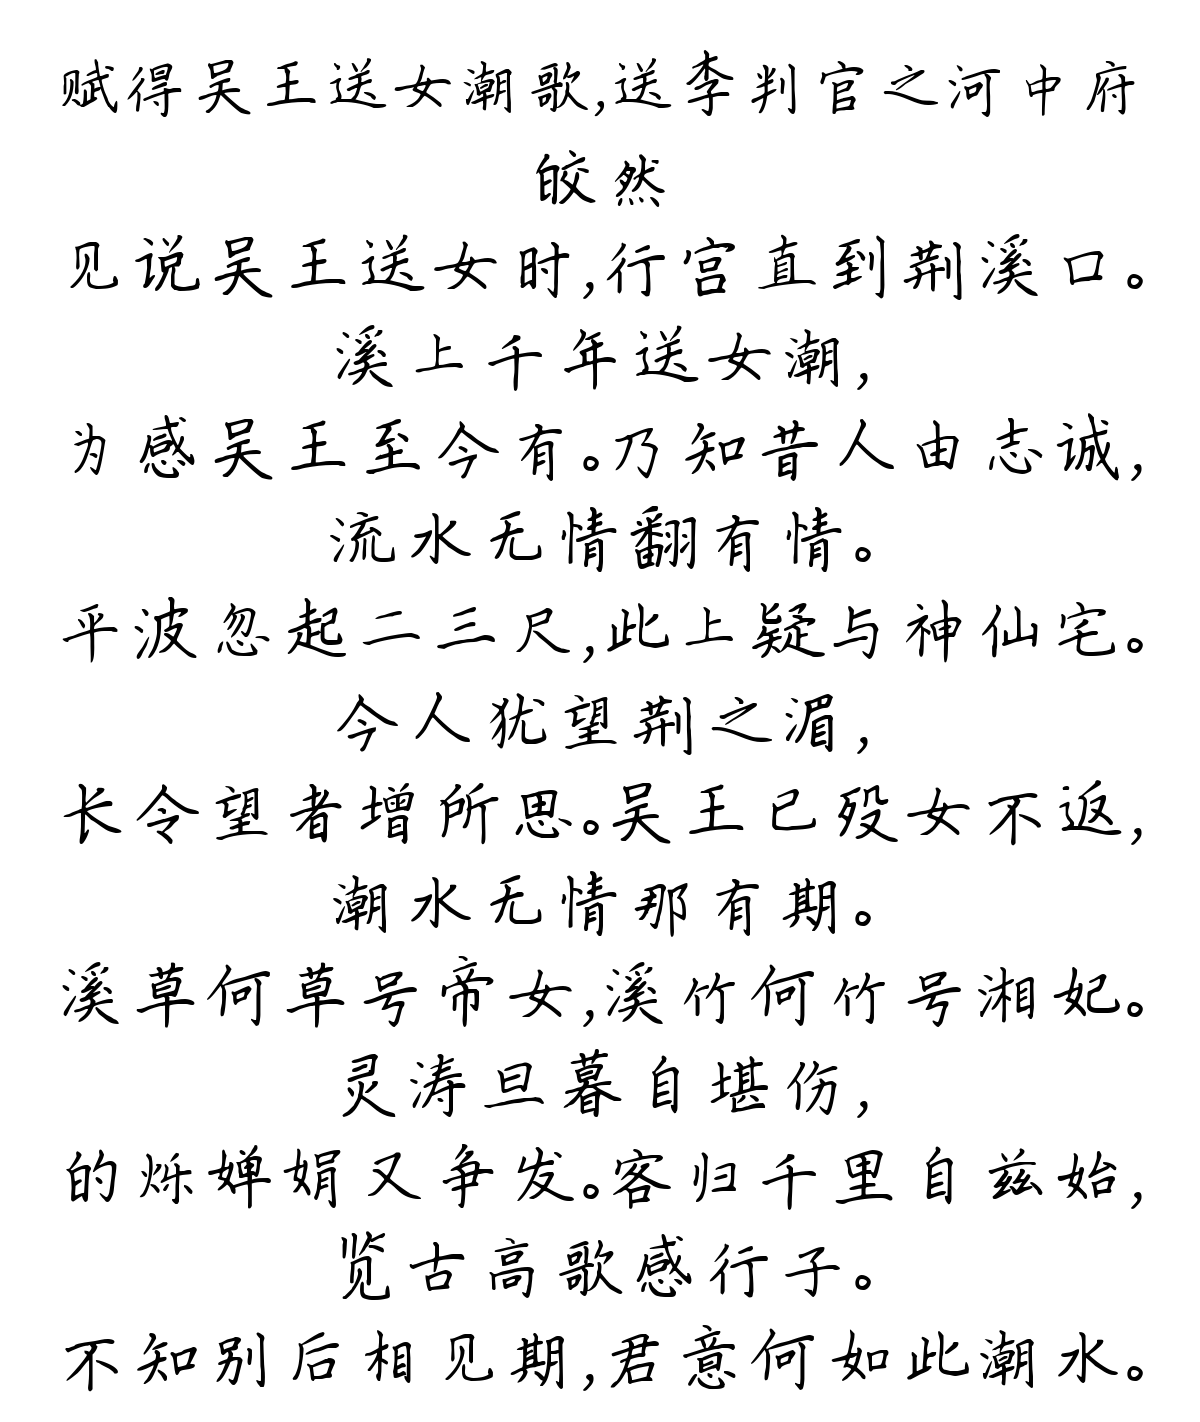 赋得吴王送女潮歌,送李判官之河中府
皎然
见说吴王送女时,行宫直到荆溪口。
溪上千年送女潮,
为感吴王至今有。乃知昔人由志诚,
流水无情翻有情。
平波忽起二三尺,此上疑与神仙宅。
今人犹望荆之湄,
长令望者增所思。吴王已殁女不返,
潮水无情那有期。
溪草何草号帝女,溪竹何竹号湘妃。
灵涛旦暮自堪伤,
的烁婵娟又争发。客归千里自兹始,
览古高歌感行子。
不知别后相见期,君意何如此潮水。